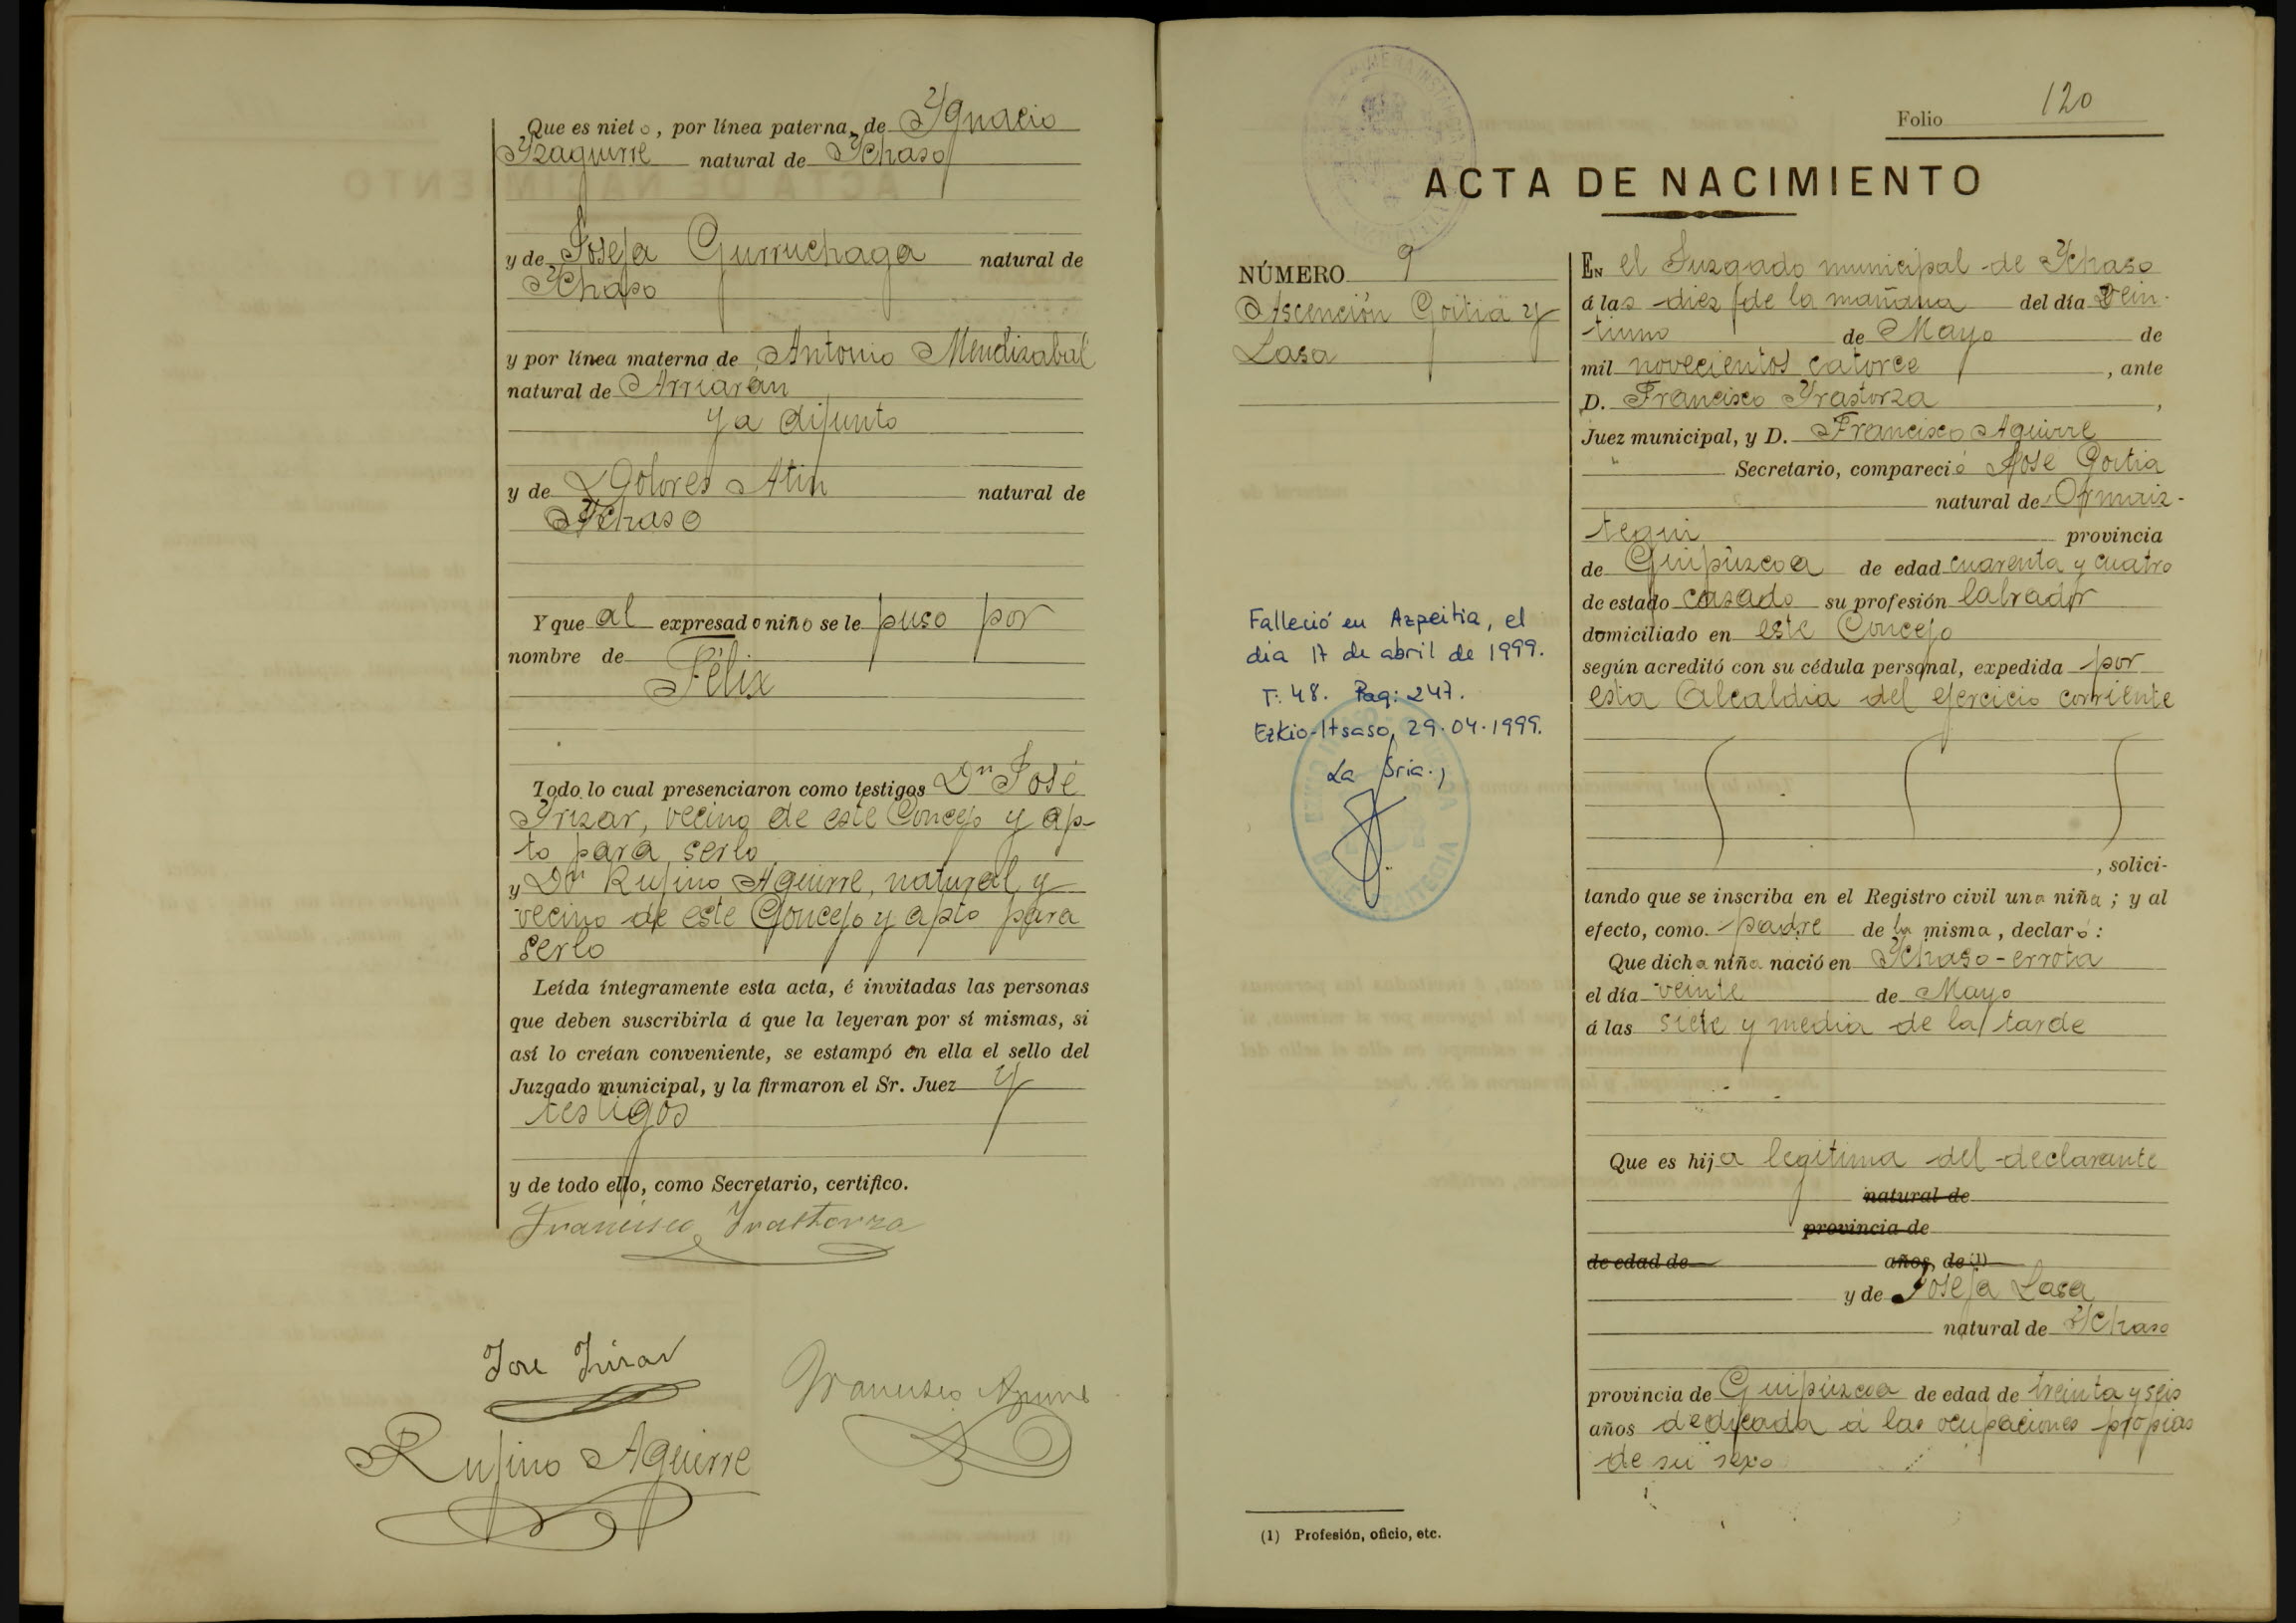 Que es nieto, por línea paterna, de Ygnacio
Yzaguirre natural de Ychaso
y de Josefa Gurruchaga natural de
Ychaso
y por línea materna de Antonio Mendizabal
natural de Arriaran
ya difunto
y de Dolores Atin natural de
Ychaso
Y que al expresado niño se le puso por
nombre de
Félix
Todo lo cual presenciaron como testigos Dn José
Yrizar, vecino de este Concejo y ap-
to para serlo
y Dn Rufino Aguirre, natural y
vecino de este Concejo y apto para
serlo
Leída íntegramente esta acta, é invitadas las personas
que deben suscribirla á que la leyeran por sí mismas, si
así lo creían conveniente, se estampó en ella el sello del
Juzgado municipal, y la firmaron el Sr. Juez y
testigos
y de todo ello, como Secretario, certifico.
Francisco Yrastorza
José Yrizar
Francisco Aguirre
Rufino Aguirre
Folio 120
ACTA DE NACIMIENTO
NÚMERO 9
Ascención Goitia y
Lasa
Falleció en Azpeitia, el
dia 17 de abril de 1999.
T: 48. Pag: 247.
Ezkio-Itsaso, 29-04-1999.
La Sria.,
En el Juzgado municipal de Ychaso
á las diez de la mañana del día vein-
tiuno de Mayo de
mil novecientos catorce, ante
D. Francisco Yrastorza,
Juez municipal, y D. Francisco Aguirre
Secretario, compareció José Goitia
natural de Ormaiz-
tegui provincia
de Guipúzcoa de edad cuarenta y cuatro
de estado casado su profesión labrador
domiciliado en este Concejo
según acreditó con su cédula personal, expedida por
esta Alcaldia del ejercicio corriente
, solici-
tando que se inscriba en el Registro civil una niña; y al
efecto, como padre de la misma, declaró:
Que dicha niña nació en Ychaso-errota
el día veinte de Mayo
á las siete y media de la tarde
Que es hija legitima del declarante
natural de
provincia de
de edad de años, de (1)
y de Josefa Lasa
natural de Ychaso
provincia de Guipúzcoa de edad de treinta y seis
años dedicada á las ocupaciones propias
de su sexo
(1) Profesión, oficio, etc.